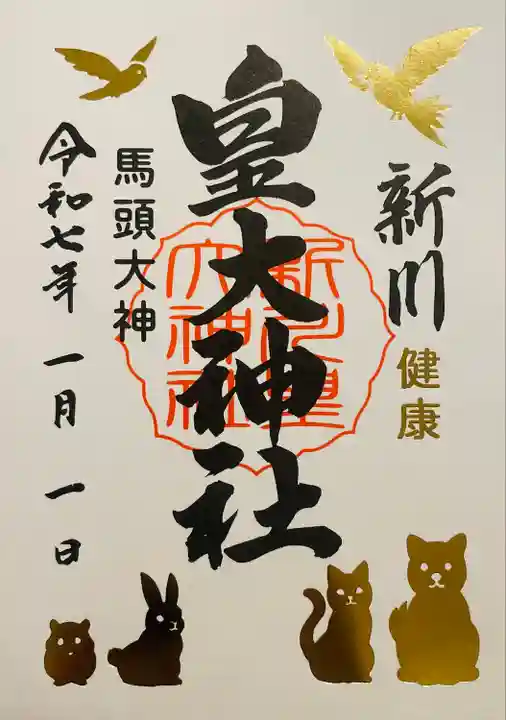 新川
健康
皇大神社
新川皇
大神社
馬頭大神
令和七年 一月 一日